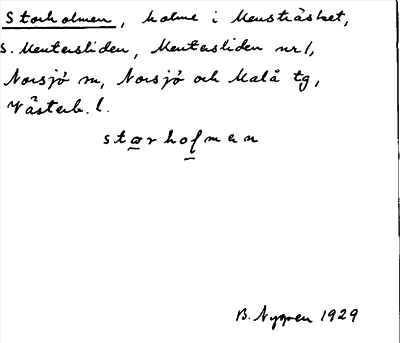 Storholmen, holme i Mensträsket,
s. Mentersliden, Mentersliden nr 1,
Norsjö sn, Norsjö och Malå tg,
Västerb. l.
stœrhofmen
B. Nygren 1929